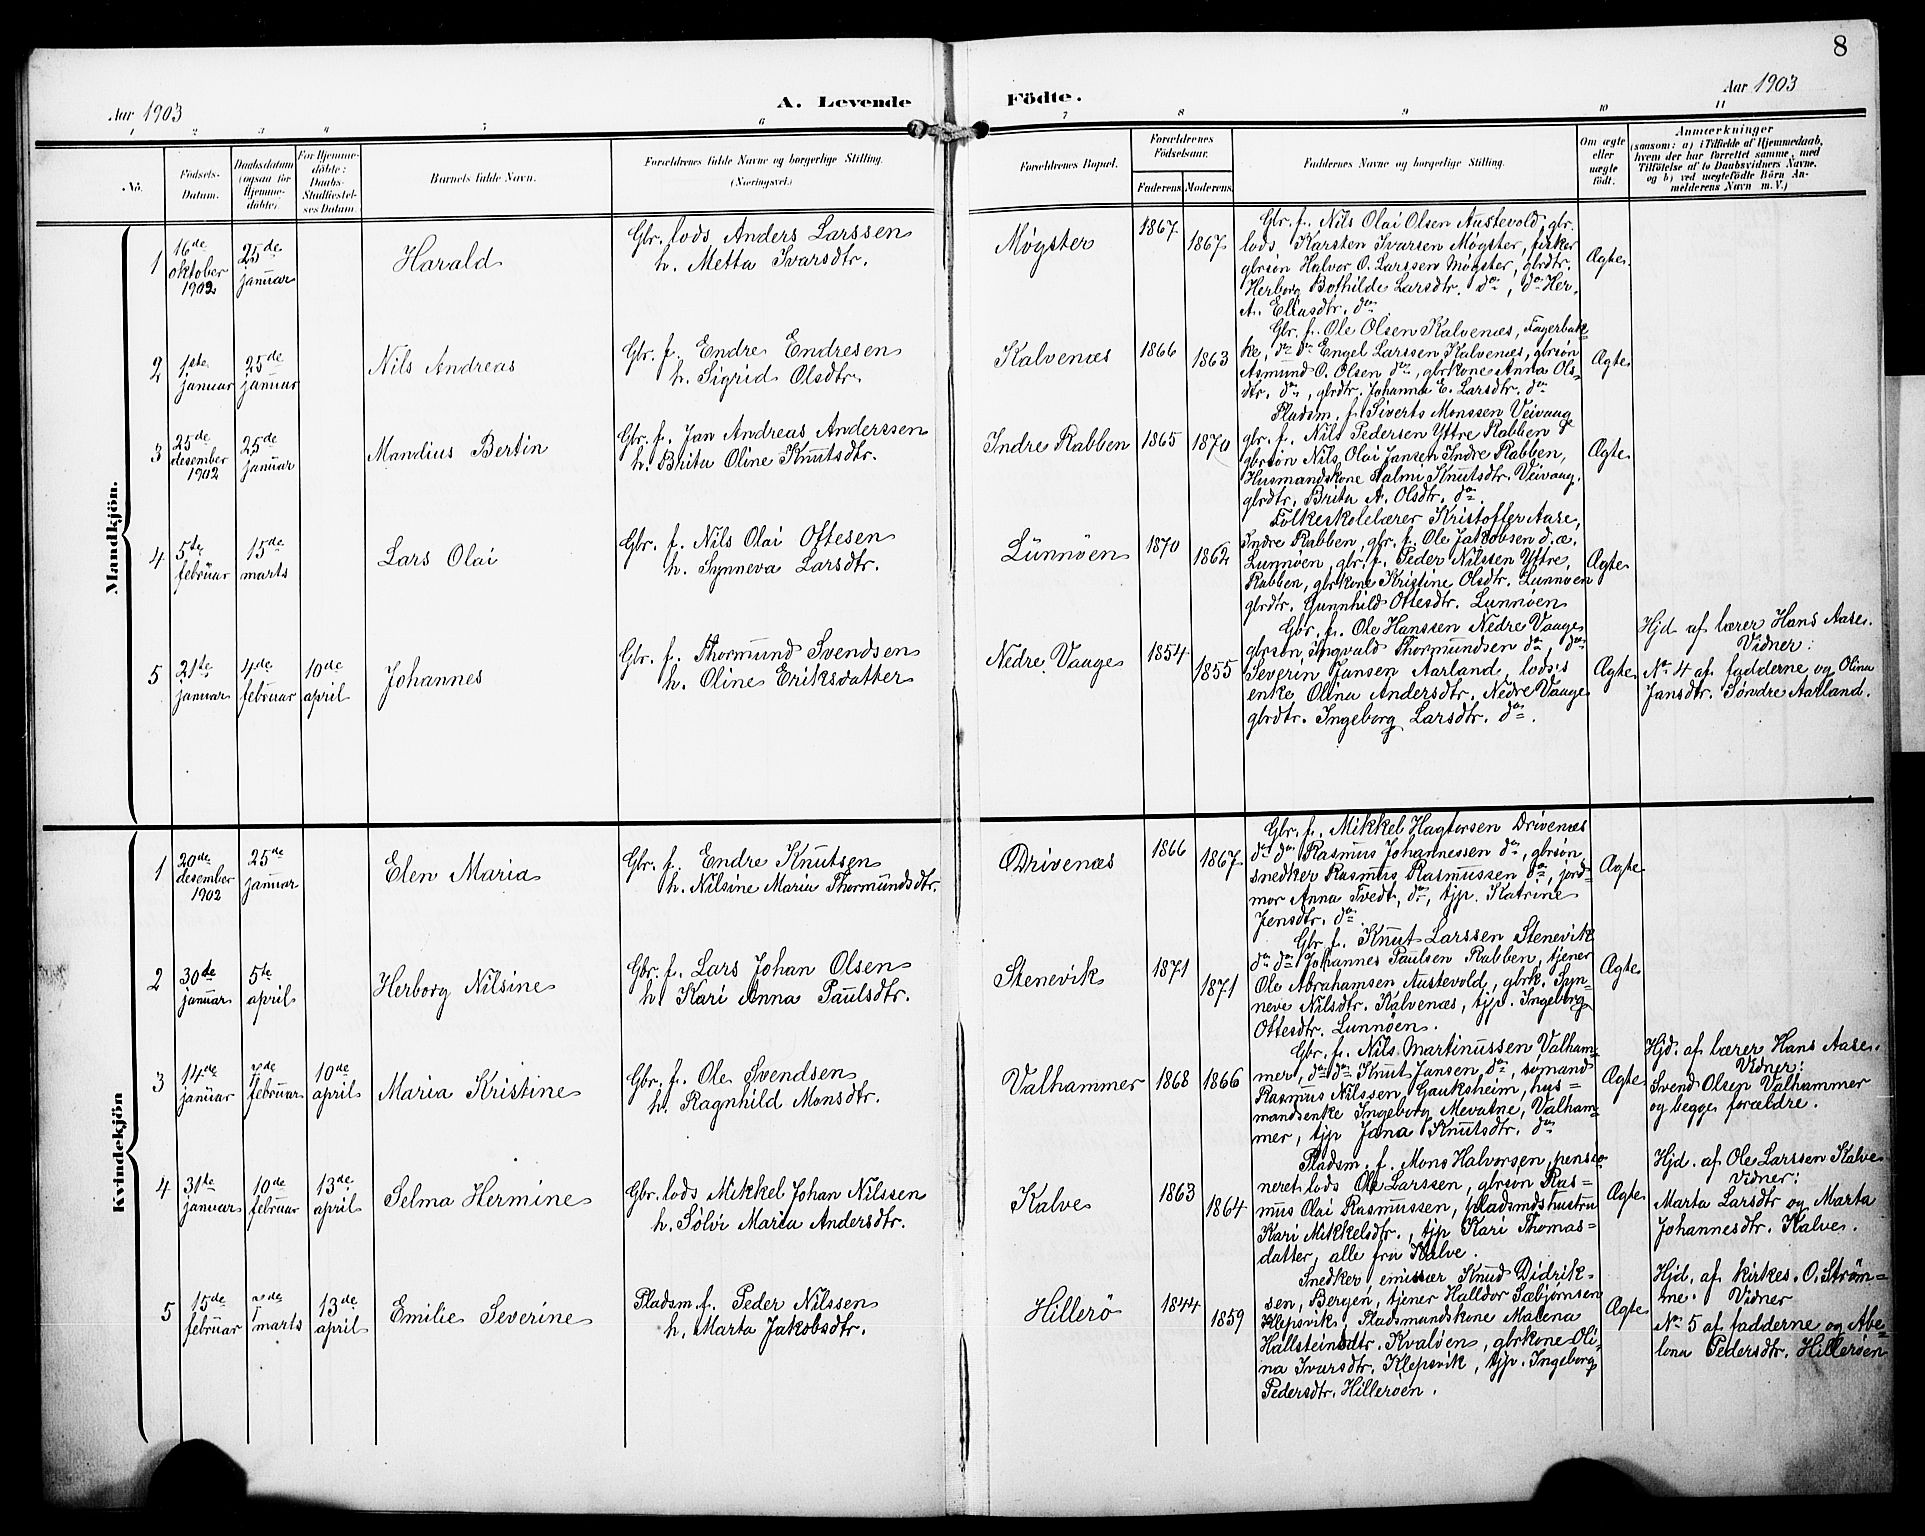 8
Aar 1903
A. Levende
Födte.
Aar 1903
1 2 3 4 5 6 7 8 9 10 11
No.
Födsels-
Datum.
Daabsdatum
(ogsaa for
Hjemme-
döbte).
For Hjemme-
döbte:
Daabs-
Stadfæstel-
ses Datum
Barnets fulde Navn.
Forældrenes fulde Navne og borgerlige Stilling.
(Næringsvei.)
Forældrenes Bopæl.
Forældrenes
Födselsaar.
Faderens Moderens
Faddernes Navne og borgerlige Stilling.
Om ægte
eller
uægte
födt.
Anmærkninger
(saasom: a) i Tilfælde af Hjemmedaab,
hvem der har forrettet samme, med
Tilföielse af to Daabsvidners Navne,
og b) ved uægtefödte Börn An-
melderens Navn m. V.)
Mandkjön.
1
16de
oktober
1902
25de
januar
Harald
Gbr. lods Anders Larssen
h. Metta Ivarsdtr.
Møgster
1867
1867
Gbr. f. Nils Olai Olsen Austevold, gbr.
lods Karsten Ivarsen Møgster, fisker
gbrsön Halvor O. Larssen Møgster, gbrdtr.
Herborg Bothilde Larsdtr. do, do Her.
A. Eliasdtr. do
Ægte.
2
1ste
januar
25de
januar
Nils Andreas
Gbr. f. Endre Endresen
h. Sigrid Olsdtr.
Kalvenæs
1866
1863
Gbr. f. Ole Olsen Kalvenæs, Fagerbak-
ke, do do Engel Larssen Kalvenæs, gbrsön
Asmund O. Olsen do, gbrkone Anna Ols-
dtr. do, gbrdtr. Johanna E. Larsdtr. do
Ægte
3
25de
desember
1902
25de
januar
Mandius Bertin
Gbr. f. Jan Andreas Anderssen
h. Brita Oline Knutsdtr.
Indre Rabben
1865
1870
Pladsm. f. Siverts Monssen Veivaag
gbr. f. Nils Pedersen Yttre Rabben
gbrsön Nils Olai Jansen Indre Rabben,
Husmandskone Salmi Knutsdtr. Veivaag.
gbrdtr. Brita A. Olsdtr. do
Ægte
4
5te
februar
15de
marts
Lars Olai
Gbr. f. Nils Olai Oftesen
h. Synneva Larsdtr.
Lunnöen
1870
1862
Folkeskolelærer Kristoffer Aase,
Indre Rabben, gbr. f. Ole Jakobsen d.æ.
Lunnöen, gbr. f. Peder Nilssen Yttre,
Rabben, gbrkone Kristine Olsdtr. Lunnöen
gbrdtr. Gunnhild Ottesdtr. Lunnöen
Ægte
5
21te
januar
4de
februar
10de
april
Johannes
Gbr. f. Thormund Svendsen
h. Oline Eriksdatter
Nedre Vaage
1854
1855
Gbr. f. Ole Hanssen Nedre Vaage
gbrsön, Ingvald Thormundsen do, do
Severin Jansen Aarland, lodses
enke Olina Andersdtr. Nedre Vaage
gbrdtr. Ingeborg Larsdtr. do.
Ægte
Hjd. af lærer Hans Aase.
Vidner:
No 4 af fadderne og Olina
Jansdtr. Söndre Aarland.
Kvindekjön
1
20de
desember
1902
25de
januar
Elen Maria
Gbr. f. Endre Knutsen
h. Nilsine Maria Thormundsdtr.
Drivenæs
1866
1867
Gbr. f. Mikkel Hagtorsen Drivenæs
do do Rasmus Johannessen do, gbrsön,
snedker Rasmus Rasmussen do, jord-
mor Anna Tvedt, do, tjp. Katrine
Jensdtr. do
Ægte
2
30de
januar
5te
april
Herborg Nilsine
Gbr. f. Lars Johan Olsen
h. Kari Anna Paulsdtr.
Stenevik
1871
1871
Gbr f. Knut Larssen Stenevik
do do Johannes Paulsen Rabben, tjener
Ole Abrahamsen Austevold, gbrk. Syn-
neve Nilsdtr. Kalvenæs, tjp. Ingeborg
Ottesdtr. Lunnöen.
Ægte
3
14de
januar
7de
februar
10de
april
Maria Kristine
Gbr. f. Ole Svendsen
h. Ragnhild Monsdtr.
Valhammer
1868
1866
Gbr. f. Nils Martinussen Valham-
mer, do do Knut Jansen do, sømand
Rasmus Nilssen Gauksheim, hus-
mandsenke Ingeborg Mevatne, Valham-
mer, tjp Jana Knutsdtr. do
Ægte
Hjd. af lærer Hans Aase.
Vidner:
Svend Olsen Valhammer
og begge forældre.
4
31te
januar
10de
februar
13de
april
Selma Hermine
Gbr. lods Mikkel Johan Nilssen
h. Sölvi Maria Andersdtr.
Kalve
1863
1864
Pladsm. f. Mons Halvorsen, pensio-
neret lods Ole Larssen, gbrsön Ras-
mus Olai Rasmussen, pladsmdshustru
Kari Mikkelsdtr., tjp Kari Thomas-
datter, alle fra Kalve.
Ægte
Hjd. af Ole Larssen Kalve
Vidner:
Marta Larsdtr og Marta
Johannesdtr. Kalve.
5
15de
februar
7de
marts
13de
april
Emilie Severine
Pladsm. f. Peder Nilssen
h. Marta Jakobsdtr.
Hillerö
1844
1859
Snedker, emissær Knud Didrik-
sen, Bergen, tjener Halldor Sæbjörnsen
Klepsvik, Pladsmandskone Malena
Hallsteinsdtr. Kvalöen, gbrkone Oli-
na Ivarsdtr. Klepsvik, tjp. Ingeborg
Pedersdtr. Hilleröen.
Ægte
Hjd. af kirkes. O. Ström-
me. Vidner
No 5 af fadderne og Abe-
lona Pedersdtr. Hilleröen